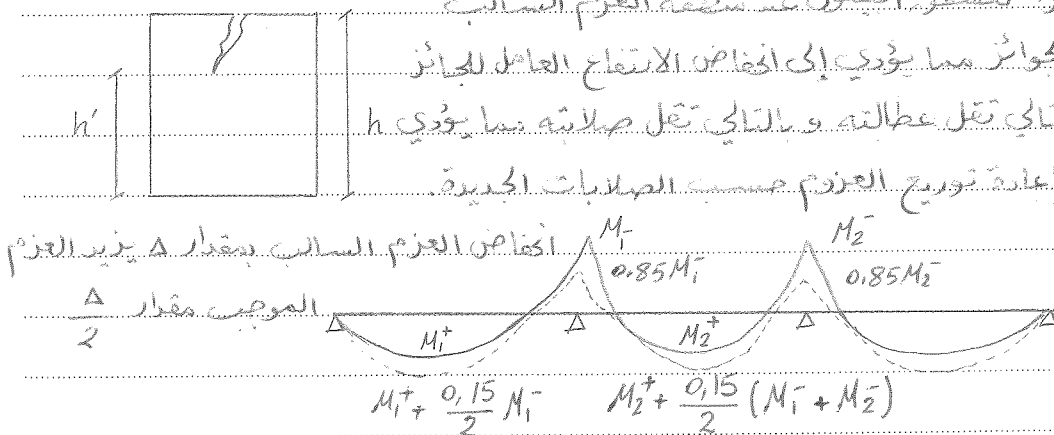 العزم السالب
مما يؤدي إلى انخفاض الارتفاع العامل للجائز
تقل عطالته و بالتالي تقل صلابته مما يؤدي
إعادة توزيع العزوم حسب الصلابات الجديدة.
h'
h
انخفاض العزم السالب بمقدار Δ يزيد العزم
الموجب مقدار Δ/2
M₁⁻
0.85M₁⁻
M₂⁻
0.85M₂⁻
M₁⁺
M₂⁺
M₁⁺ + 0,15/2 M₁⁻
M₂⁺ + 0,15/2 (M₁⁻ + M₂⁻)